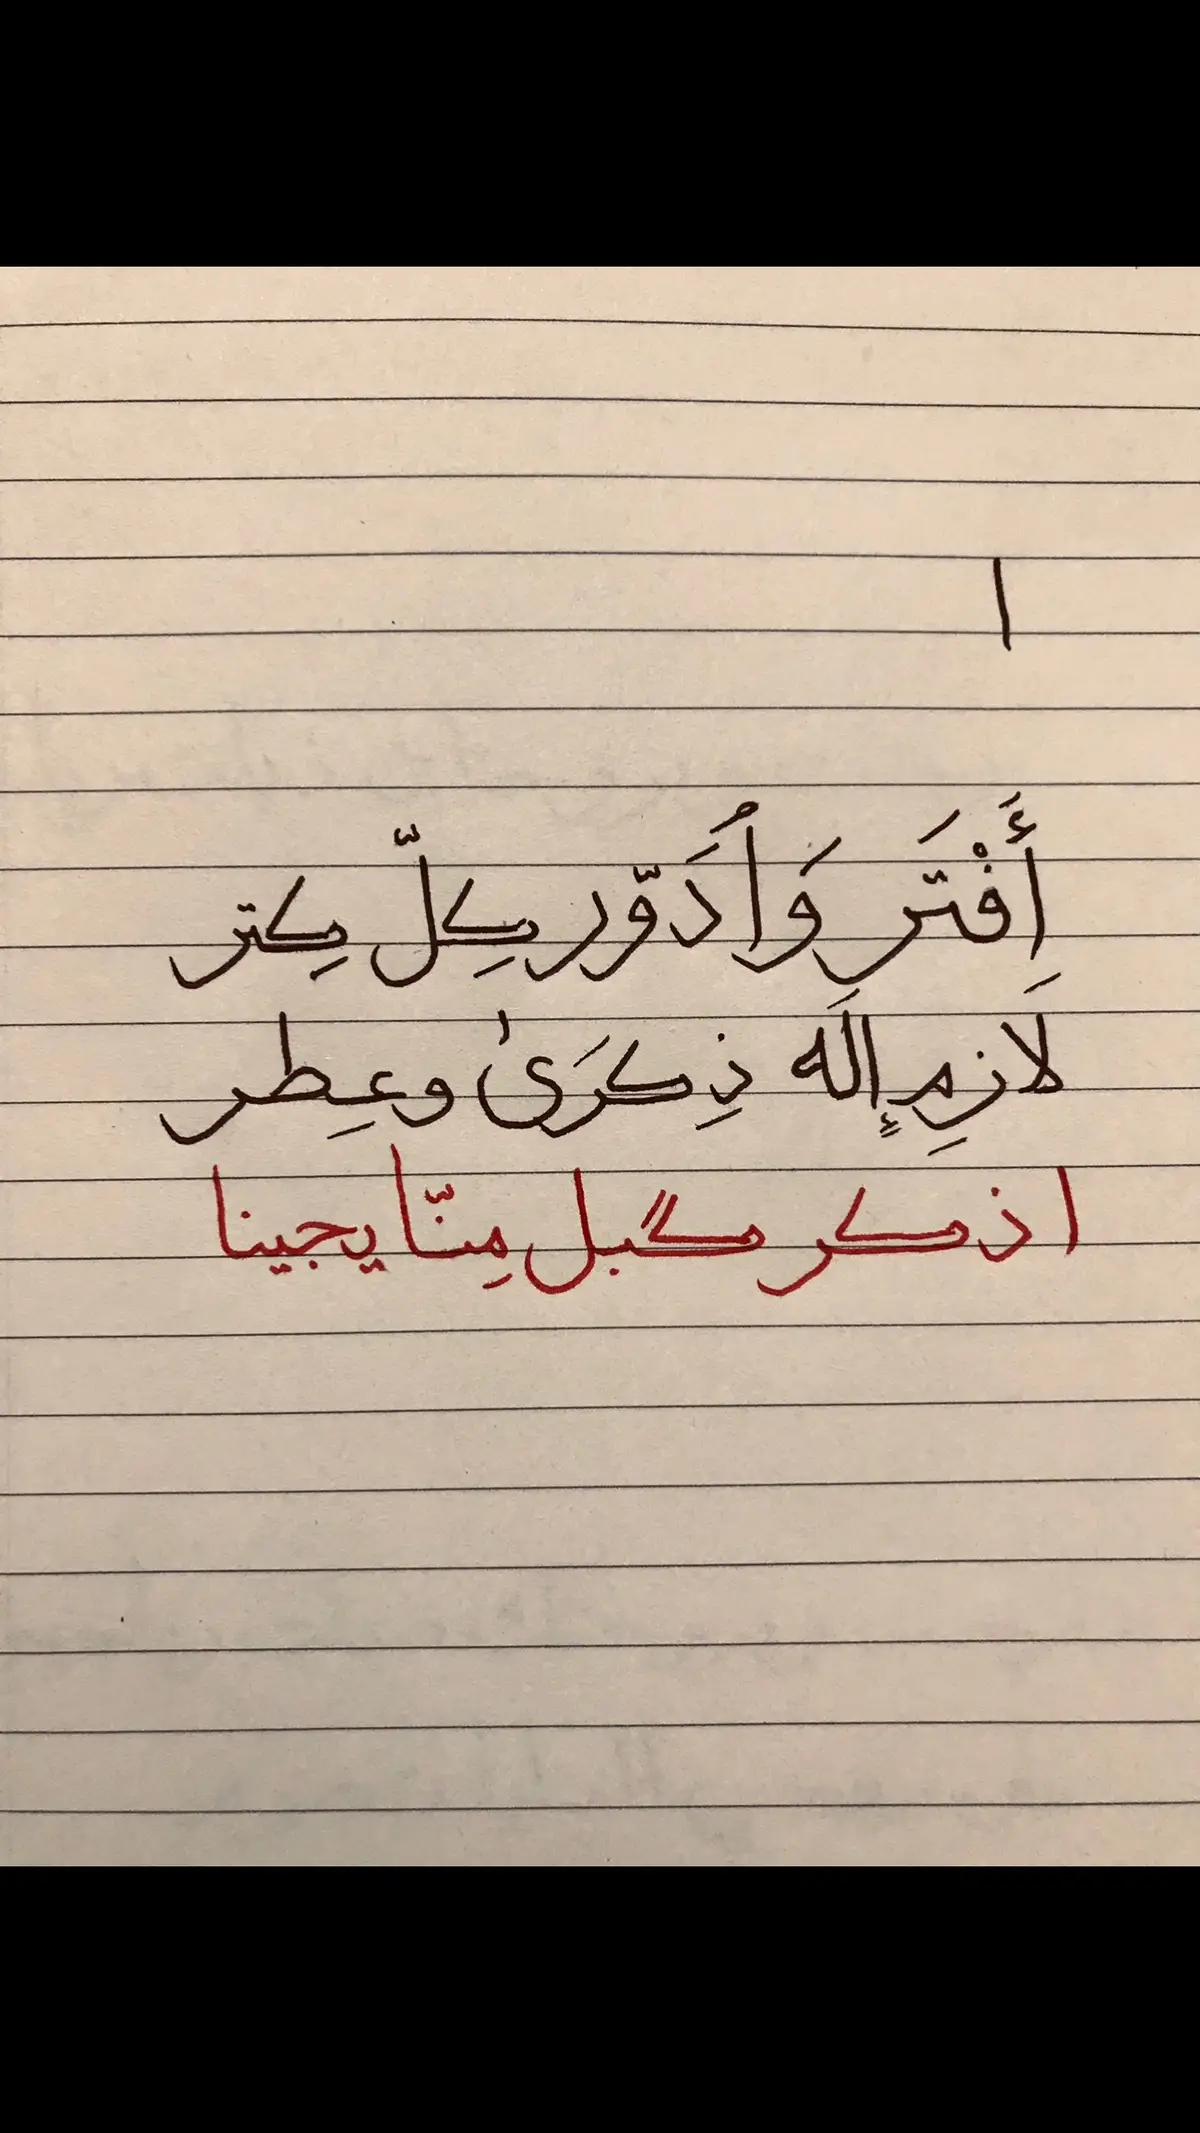 ا
أَفْتَر وَاُدَوّر كِلّ كِتر
لَازِم إلَه ذِكرَىٰ وعِطر
اذكر گبل مِنّا يجينا